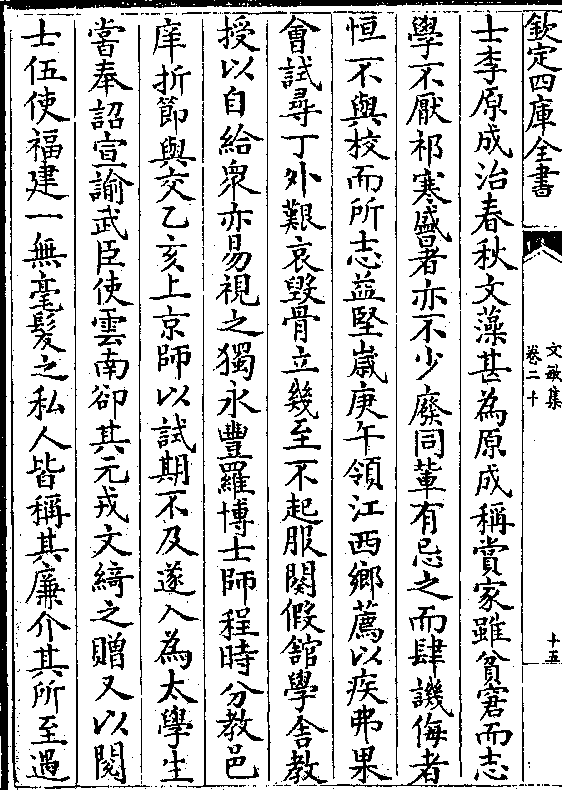 欽定四庫全書
文敏集
卷二十
十五
士李原成治春秋文藻甚為原成稱賞家雖貧窘而志
學不厭祁寒盛暑者亦不少廢同輩有忌之而肆譏侮者
恒不與校而所志益堅嵗庚午領江西鄉薦以疾弗果
會試尋丁外艱哀毀骨立幾至不起服闋假舘學舎教
授以自給衆亦易視之獨永豐羅博士師程時分教邑
庠折節與交乙亥上京師以試期不及遂入為太學生
嘗奉詔宣諭武臣使雲南卻其元戎文綺之贈又以閲
士伍使福建一無毫髮之私人皆稱其廉介其所至遇